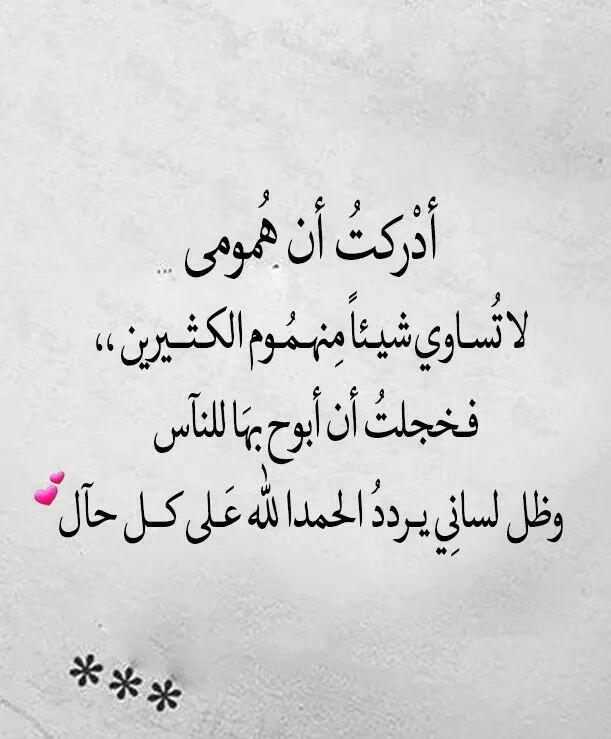 أدْركتُ أن هُمومى
...
لا تُساوي شيئاً مِنهمُوم الكثيرين ،،
فخجلتُ أن أبوح بهَا للنآس
وظل لسانِي يرددُ الحمدا لله عَلى كل حآل 💕
***